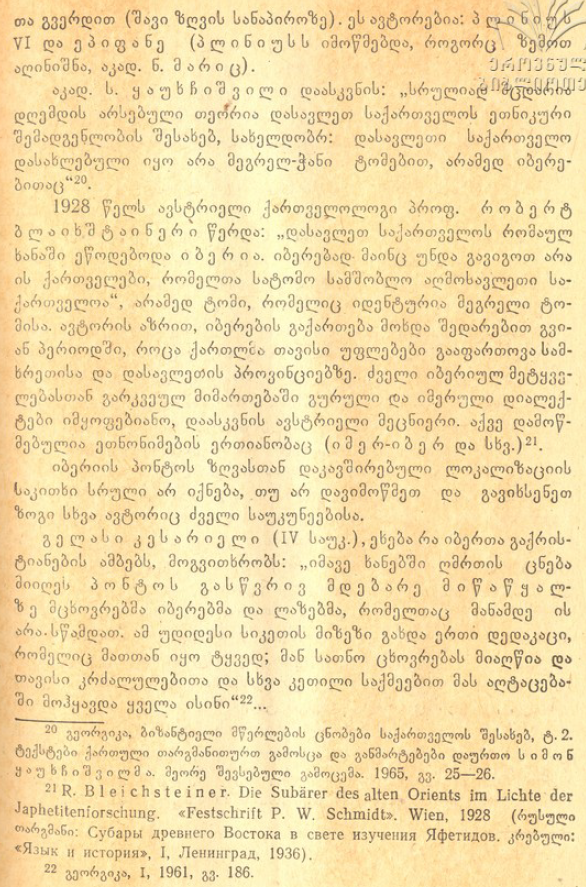 თა გვერდით (შავი ზღვის სანაპიროზე). ეს ავტორებია: პლინიუს
VI და ეპიფანე (პლინიუსს იმოწმებდა, როგორც ზემოთ
აღინიშნა, აკად. ნ. მარიც).
აკად. ს. ყაუხჩიშვილი დაასკვნის: „სრულიად მცდარია
დღემდის არსებული თეორია დასავლეთ საქართველოს ეთნიკური
შემადგენლობის შესახებ, სახელდობრ: დასავლეთი საქართველო
დასახლებული იყო არა მეგრელ-ჭანი ტომებით, არამედ იბერე-
ბითაც“20.
1928 წელს ავსტრიელი ქართველოლოგი პროფ. რობერტ
ბლაიხშტაინერი წერდა: „დასავლეთ საქართველოს რომაულ
ხანაში ეწოდებოდა იბერია. იბერებად მაინც უნდა გავიგოთ არა
ის ქართველები, რომელთა სატომო სამშობლო აღმოსავლეთი სა-
ქართველოა“, არამედ ტომი, რომელიც იდენტურია მეგრელი ტო-
მისა. ავტორის აზრით, იბერების გაქართება მოხდა შედარებით გვი-
ან პერიოდში, როცა ქართლმა თავისი უფლებები გააფართოვა სამ-
ხრეთისა და დასავლეთის პროვინციებზე. ძველი იბერიულ მეტყვე-
ლებასთან გარკვეულ მიმართებაში გურული და იმერული დიალექ-
ტები იმყოფებიანო, დაასკვნის ავსტრიელი მეცნიერი. აქვე დამოწ-
მებულია ეთნონიმების ერთიანობაც (იმერ-იბერ და სხვ.)21.
იბერიის პონტოს ზღვასთან დაკავშირებული ლოკალიზაციის
საკითხი სრული არ იქნება, თუ არ დავიმოწმეთ და გავიხსენეთ
ზოგი სხვა ავტორიც ძველი საუკუნეებისა.
გელასი კესარიელი (IV საუკ.), ეხება რა იბერთა გაქრის-
ტიანების ამბებს, მოგვითხრობს: „იმავე ხანებში ღმრთის ცნება
მიიღეს პონტოს გასწვრივ მდებარე მიწაწყალ-
ზე მცხოვრებმა იბერებმა და ლაზებმა, რომელთაც მანამდე ის
არა სწამდათ. ამ უდიდესი სიკეთის მიზეზი გახდა ერთი დედაკაცი,
რომელიც მათთან იყო ტყვედ; მან სათნო ცხოვრებას მიაღწია და
თავისი კრძალულებითა და სხვა კეთილი საქმეებით მას აღტაცება-
ში მოჰყავდა ყველა ისინი“22...
20 გეორგიკა, ბიზანტიელი მწერლების ცნობები საქართველოს შესახებ, ტ. 2.
ტექსტები ქართული თარგმანითურთ გამოსცა და განმარტებები დაურთო სიმონ
ყაუხჩიშვილმა. მეორე შევსებული გამოცემა. 1965, გვ. 25—26.
21 R. Bleichsteiner. Die Subärer des alten Orients im Lichte der
Japhetitenforschung. «Festschrift P. W. Schmidt». Wien, 1928 (რუსული
თარგმანი: Субары древнего Востока в свете изучения Яфетидов. კრებული:
«Язык и история», I, Ленинград, 1936).
22 გეორგიკა, I, 1961, გვ. 186.